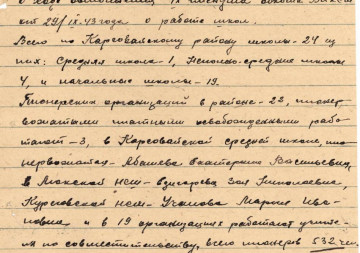 о ходе выполнения IX пленума
от 29/IX.43 года о работе школ.
Всего по Карсовайскому району школы-24 из
них: Средняя школа-1, Неполно-средние школы
4, и начальные школы-19.
Пионерских организаций в районе-22, пионер
вожатыми штатными освобожденными рабо
тают-3, в Карсовайской средней школе, пио
нервожатая- Абашева Екатерина Васильевна,
в НСШ- Зоя Николаевна,
НСШ- Мария Ива
новна, и в 19 организациях работают учите
ля по совместительству, всего пионеров 532 чел.